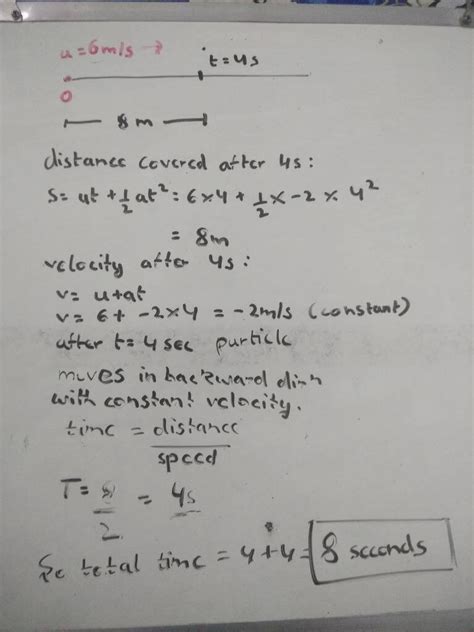 u = 6m/s →
t = 4s
0
8 m
distance covered after 4s :
S = ut + 1/2 at² = 6×4 + 1/2 × -2 × 4²
= 8m
velocity after 4s :
v = u+at
v = 6 + -2×4 = -2m/s (constant)
after t = 4 sec particle
moves in backward dirn
with constant velocity.
time = distance/speed
T = 8/2 = 4s
So total time = 4+4 = 8 seconds